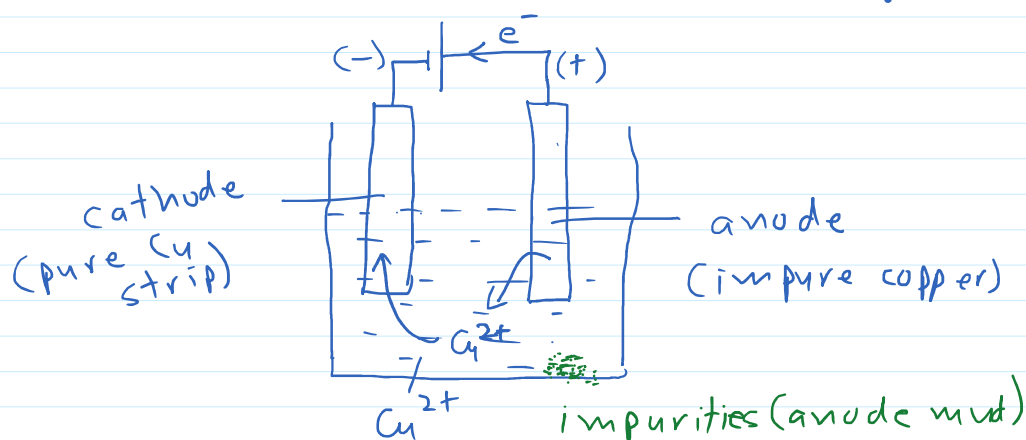 e⁻
(-)
(+)
cathode
(pure Cu
strip)
anode
(impure copper)
Cu²⁺
Cu²⁺
impurities (anode mud)